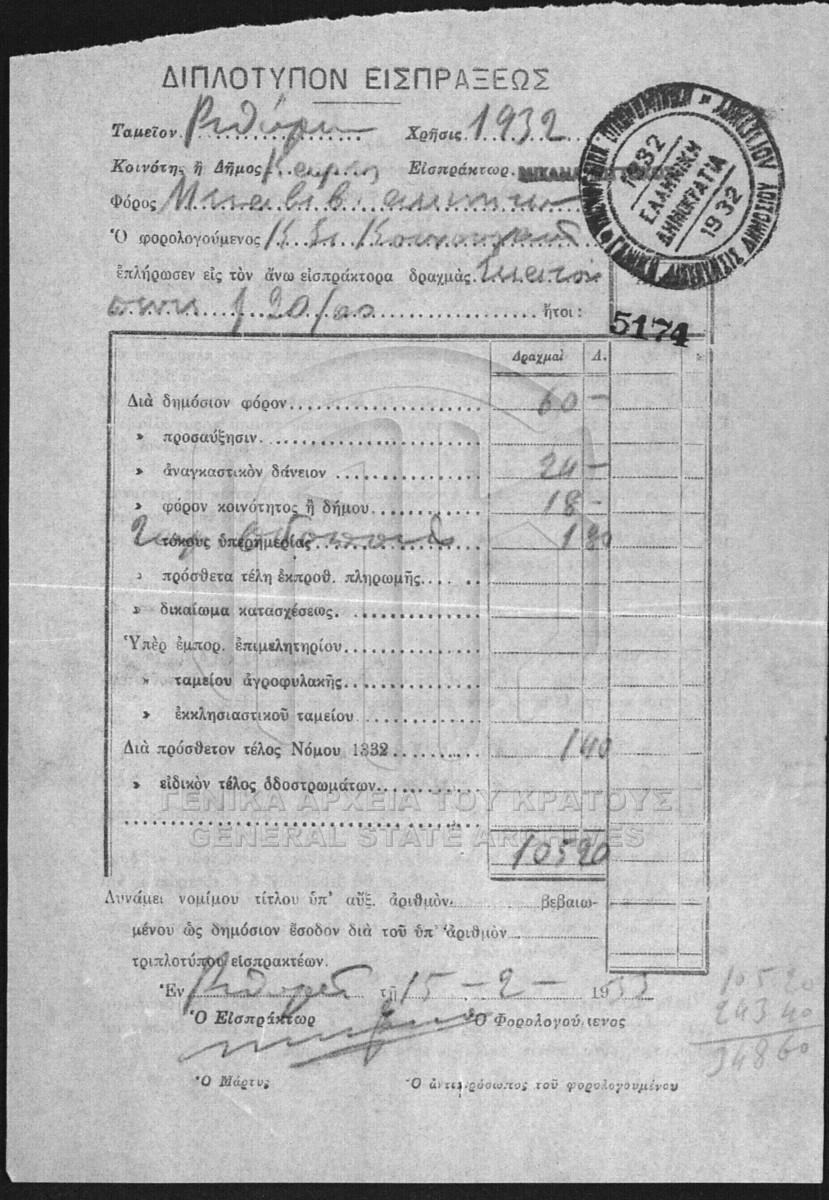 ΔΙΠΛΟΤΥΠΟΝ ΕΙΣΠΡΑΞΕΩΣ
Ταμεῖον Χρῆσις 1932
Κοινότης ἢ Δῆμος Εἰσπράκτωρ
Φόρος
Ὁ φορολογούμενος
ἐπλήρωσεν εἰς τὸν ἄνω εἰσπράκτορα δραχμὰς
ἤτοι:
1932
ΕΛΛΗΝΙΚΗ
ΔΗΜΟΚΡΑΤΙΑ
1932
5174
Δραχμαὶ Λ.
Διὰ δημόσιον φόρον 60 —
» προσαύξησιν
» ἀναγκαστικὸν δάνειον 24 —
» φόρον κοινότητος ἢ δήμου 18 —
τόκους ὑπερημερίας 1 80
» πρόσθετα τέλη ἐκπροθ. πληρωμῆς
» δικαίωμα κατασχέσεως
Ὑπὲρ ἐμπορ. ἐπιμελητηρίου
» ταμείου ἀγροφυλακῆς
» ἐκκλησιαστικοῦ ταμείου
Διὰ πρόσθετον τέλος Νόμου 1332 1 40
» εἰδικὸν τέλος ὁδοστρωμάτων
ΓΕΝΙΚΑ ΑΡΧΕΙΑ ΤΟΥ ΚΡΑΤΟΥΣ
GENERAL STATE ARCHIVES
105 20
Δυνάμει νομίμου τίτλου ὑπ' αὔξ. ἀριθμὸν βεβαιω-
μένου ὡς δημόσιον ἔσοδον διὰ τοῦ ὑπ' ἀριθμὸν
τριπλοτύπου εἰσπρακτέων.
Ἐν τῇ 15 - 2 - 1933
Ὁ Εἰσπράκτωρ Ὁ Φορολογούμενος
Ὁ Μάρτυς Ὁ ἀντιπρόσωπος τοῦ φορολογουμένου
105 20
243 40
348 60